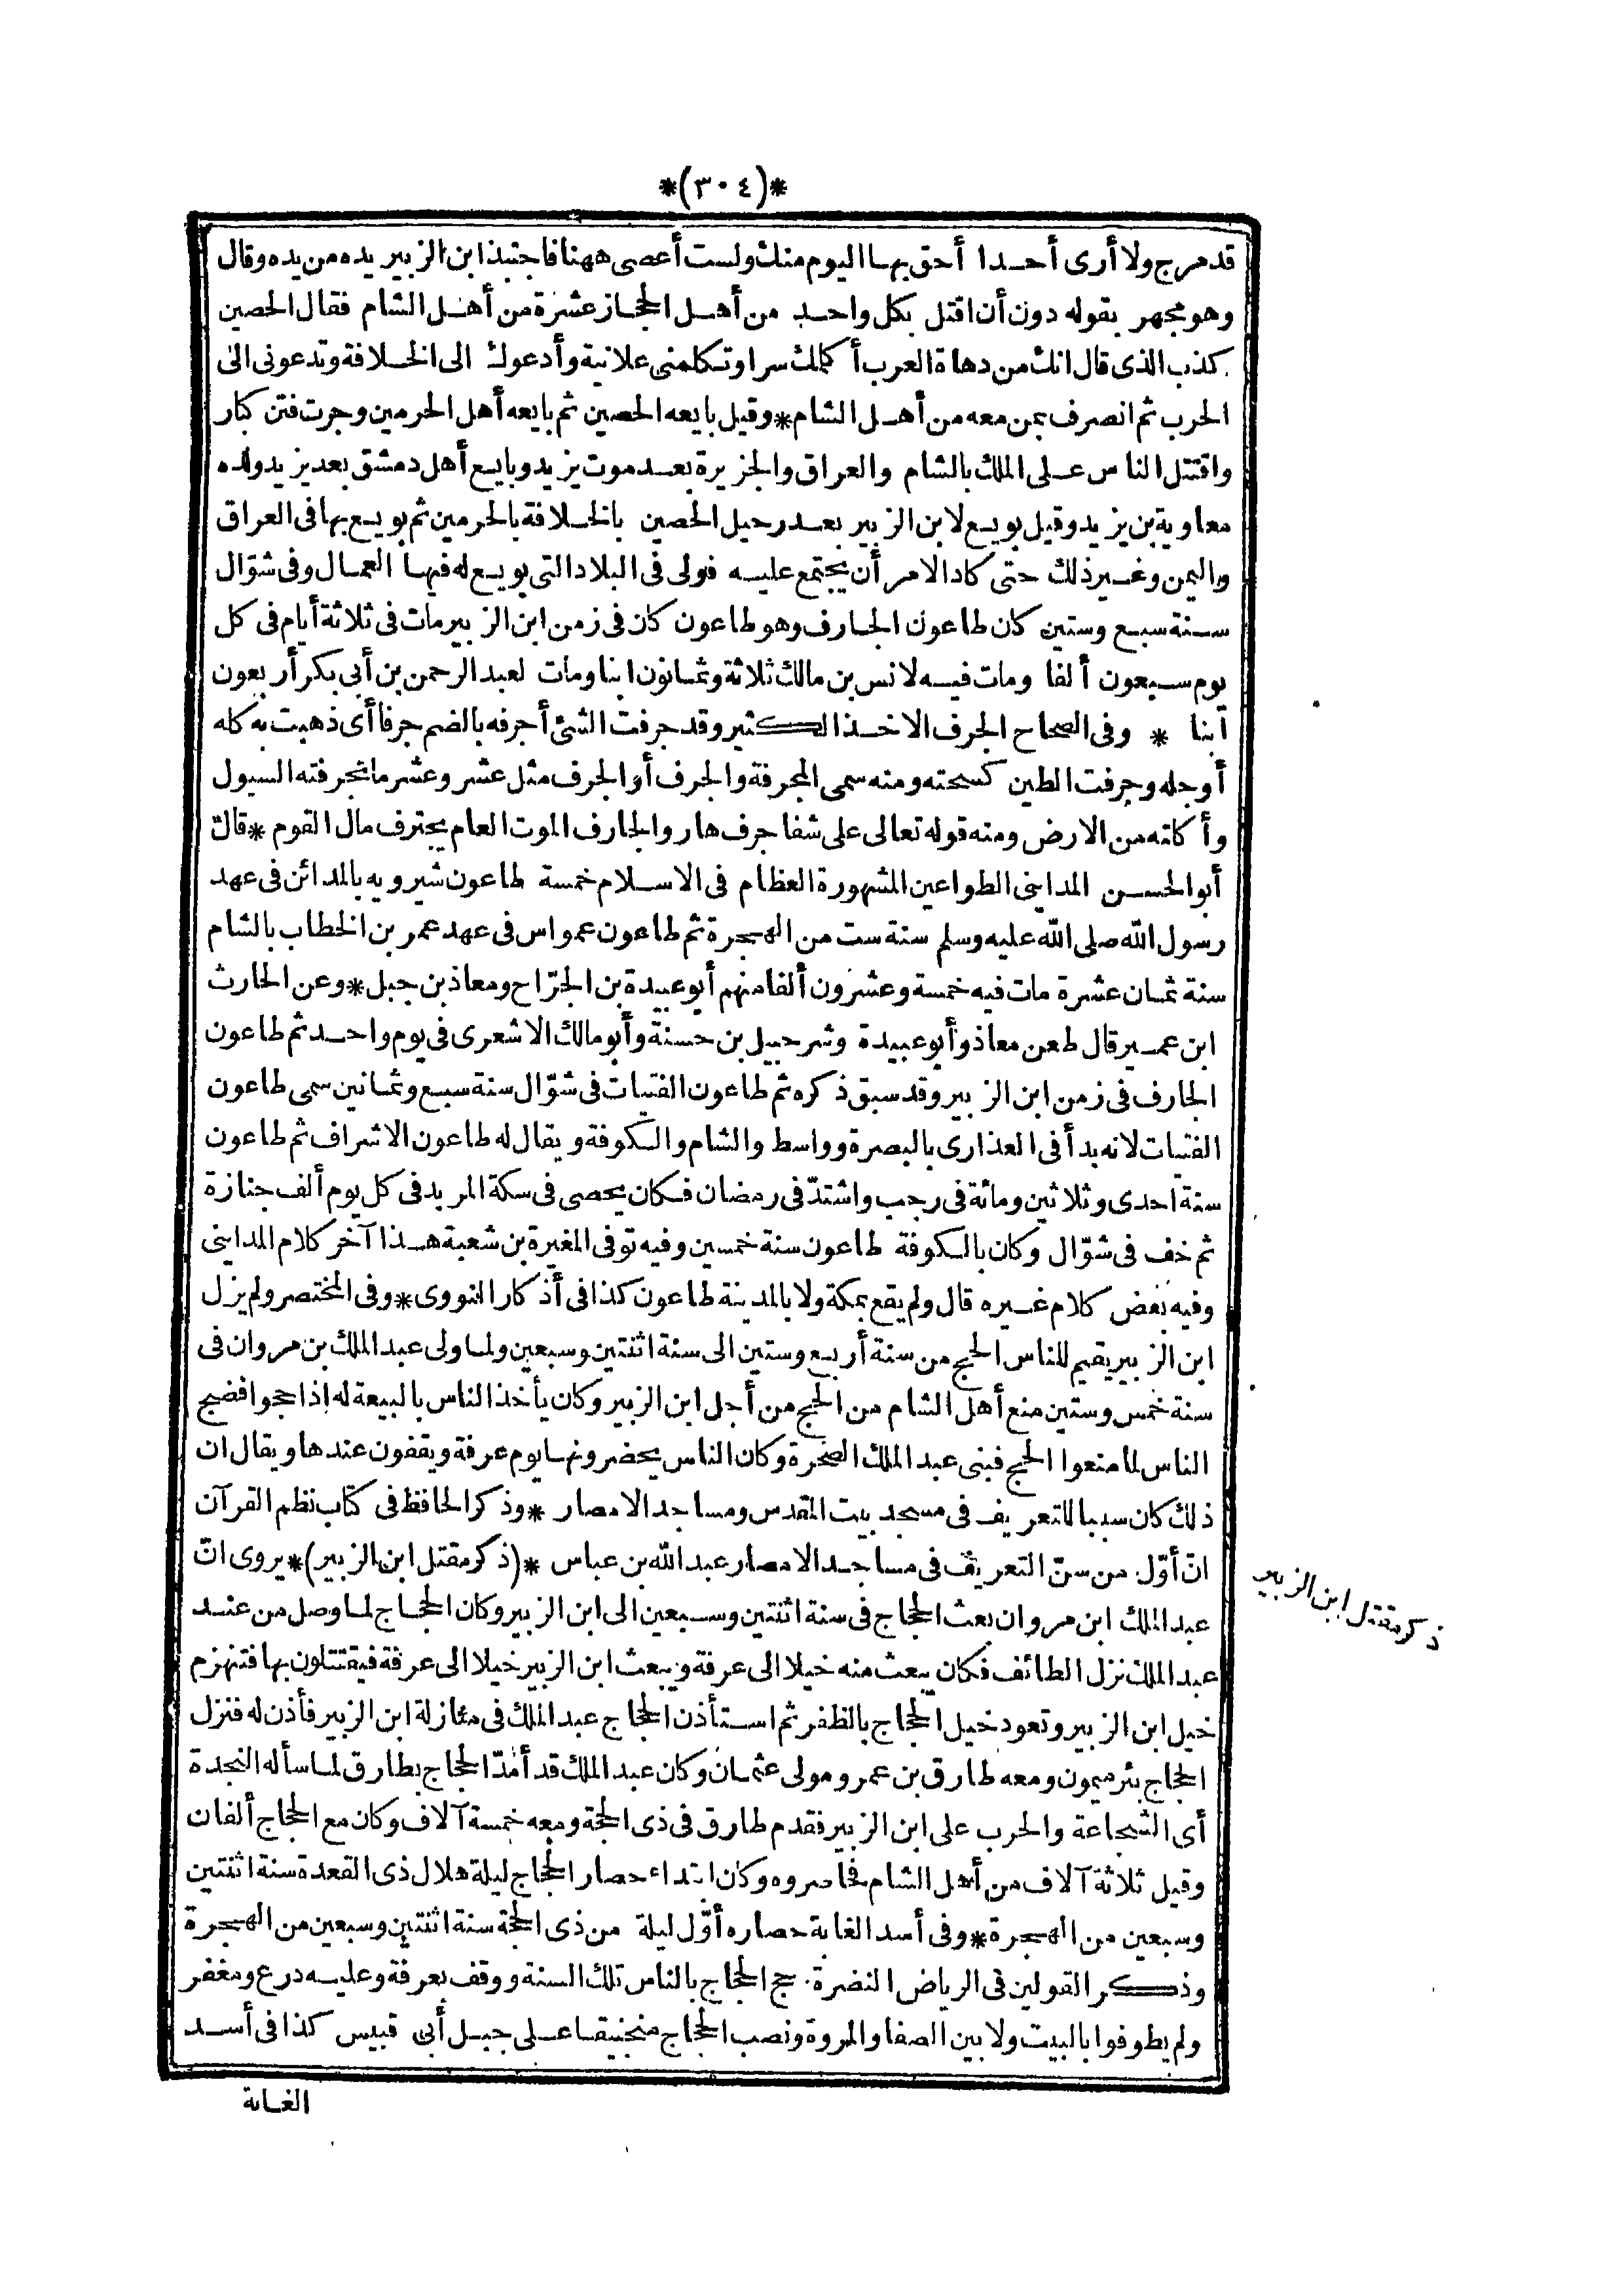 *(٣٠٤)*
قد مرج ولا أرى أحدا أحق بها اليوم منك ولست أعصى ههنا فاجتبذ ابن الزبير يده من يده وقال
وهو يجهر بقوله دون أن اقتل بكل واحد من أهل الحجاز عشرة من أهل الشام فقال الحصين
كذب الذى قال انك من دهاة العرب أكلمك سرا وتكلمنى علانية وأدعوك الى الخلافة وتدعونى الى
الحرب ثم انصرف بمن معه من أهل الشام * وقيل بايعه الحصين ثم بايعه أهل الحرمين وجرت فتن كبار
واقتتل الناس على الملك بالشام والعراق والجزيرة بعد موت يزيد وبايع أهل دمشق بعد يزيد ولده
معاوية بن يزيد وقيل بويع لابن الزبير بعد رحيل الحصين بالخلافة بالحرمين ثم بويع بها فى العراق
واليمن وغير ذلك حتى كاد الامر أن يجتمع عليه فولى فى البلاد التى بويع له فيها العمال وفى شوّال
سنة سبع وستين كان طاعون الجارف وهو طاعون كان فى زمن ابن الزبير مات فى ثلاثة أيام فى كل
يوم سبعون ألفا ومات فيه لانس بن مالك ثلاثة وثمانون ابنا ومات لعبد الرحمن بن أبى بكر أربعون
ابنا * وفى الصحاح الجرف الاخذ الكثير وقد جرفت الشئ أجرفه بالضم جرفا أى ذهبت به كله
أو جله وجرفت الطين كسحته ومنه سمى المجرفة والجرف أو الجرف مثل عشر وعشر ما تجرفته السيول
وأكلته من الارض ومنه قوله تعالى على شفا جرف هار والجارف الموت العام يجترف مال القوم * قال
أبو الحسن المداينى الطواعين المشهورة العظام فى الاسلام خمسة طاعون شيرويه بالمدائن فى عهد
رسول الله صلى الله عليه وسلم سنة ست من الهجرة ثم طاعون عمواس فى عهد عمر بن الخطاب بالشام
سنة ثمان عشرة مات فيه خمسة وعشرون ألفا منهم أبو عبيدة بن الجرّاح ومعاذ بن جبل * وعن الحارث
ابن عمير قال طعن معاذ وأبو عبيدة وشرحبيل بن حسنة وأبو مالك الاشعرى فى يوم واحد ثم طاعون
الجارف فى زمن ابن الزبير وقد سبق ذكره ثم طاعون الفتيات فى شوّال سنة سبع وثمانين سمى طاعون
الفتيات لانه بدأ فى العذارى بالبصرة وواسط والشام والكوفة ويقال له طاعون الاشراف ثم طاعون
سنة احدى وثلاثين ومائة فى رجب واشتدّ فى رمضان فكان يحصى فى سكة المربد فى كل يوم ألف جنازة
ثم خف فى شوّال وكان بالكوفة طاعون سنة خمسين وفيه توفى المغيرة بن شعبة هذا آخر كلام المداينى
وفيه بعض كلام غيره قال ولم يقع بمكة ولا بالمدينة طاعون كذا فى أذكار النووى * وفى المختصر ولم يزل
ابن الزبير يقيم للناس الحج من سنة أربع وستين الى سنة اثنتين وسبعين ولما ولى عبد الملك بن مروان فى
سنة خمس وستين منع أهل الشام من الحج من أجل ابن الزبير وكان يأخذ الناس بالبيعة له اذا حجوا فضج
الناس لما منعوا الحج فبنى عبد الملك الصخرة وكان الناس يحضرونها يوم عرفة ويقفون عندها ويقال ان
ذلك كان سببا للتعريف فى مسجد بيت المقدس ومساجد الامصار * وذكر الحافظ فى كتاب نظم القرآن
انّ أوّل من سنّ التعريف فى مساجد الامصار عبد الله بن عباس *(ذكر مقتل ابن الزبير)* يروى انّ
ذكر مقتل ابن الزبير
عبد الملك ابن مروان بعث الحجاج فى سنة اثنتين وسبعين الى ابن الزبير وكان الحجاج لما وصل من عند
عبد الملك نزل الطائف فكان يبعث منه خيلا الى عرفة ويبعث ابن الزبير خيلا الى عرفة فيقتتلون بها فتنهزم
خيل ابن الزبير وتعود خيل الحجاج بالظفر ثم استأذن الحجاج عبد الملك فى منازلة ابن الزبير فأذن له فنزل
الحجاج بئر ميمون ومعه طارق بن عمرو مولى عثمان وكان عبد الملك قد أمدّ الحجاج بطارق لما سأله النجدة
أى الشجاعة والحرب على ابن الزبير فقدم طارق فى ذى الحجة ومعه خمسة آلاف وكان مع الحجاج ألفان
وقيل ثلاثة آلاف من أهل الشام فحاصروه وكان ابتداء حصار الحجاج ليلة هلال ذى القعدة سنة اثنتين
وسبعين من الهجرة * وفى أسد الغابة حصاره أوّل ليلة من ذى الحجة سنة اثنتين وسبعين من الهجرة
وذكر القولين فى الرياض النضرة. حج الحجاج بالناس تلك السنة ووقف بعرفة وعليه درع ومغفر
ولم يطوفوا بالبيت ولا بين الصفا والمروة ونصب الحجاج منجنيقا على جبل أبى قبيس كذا فى أسد
الغابة